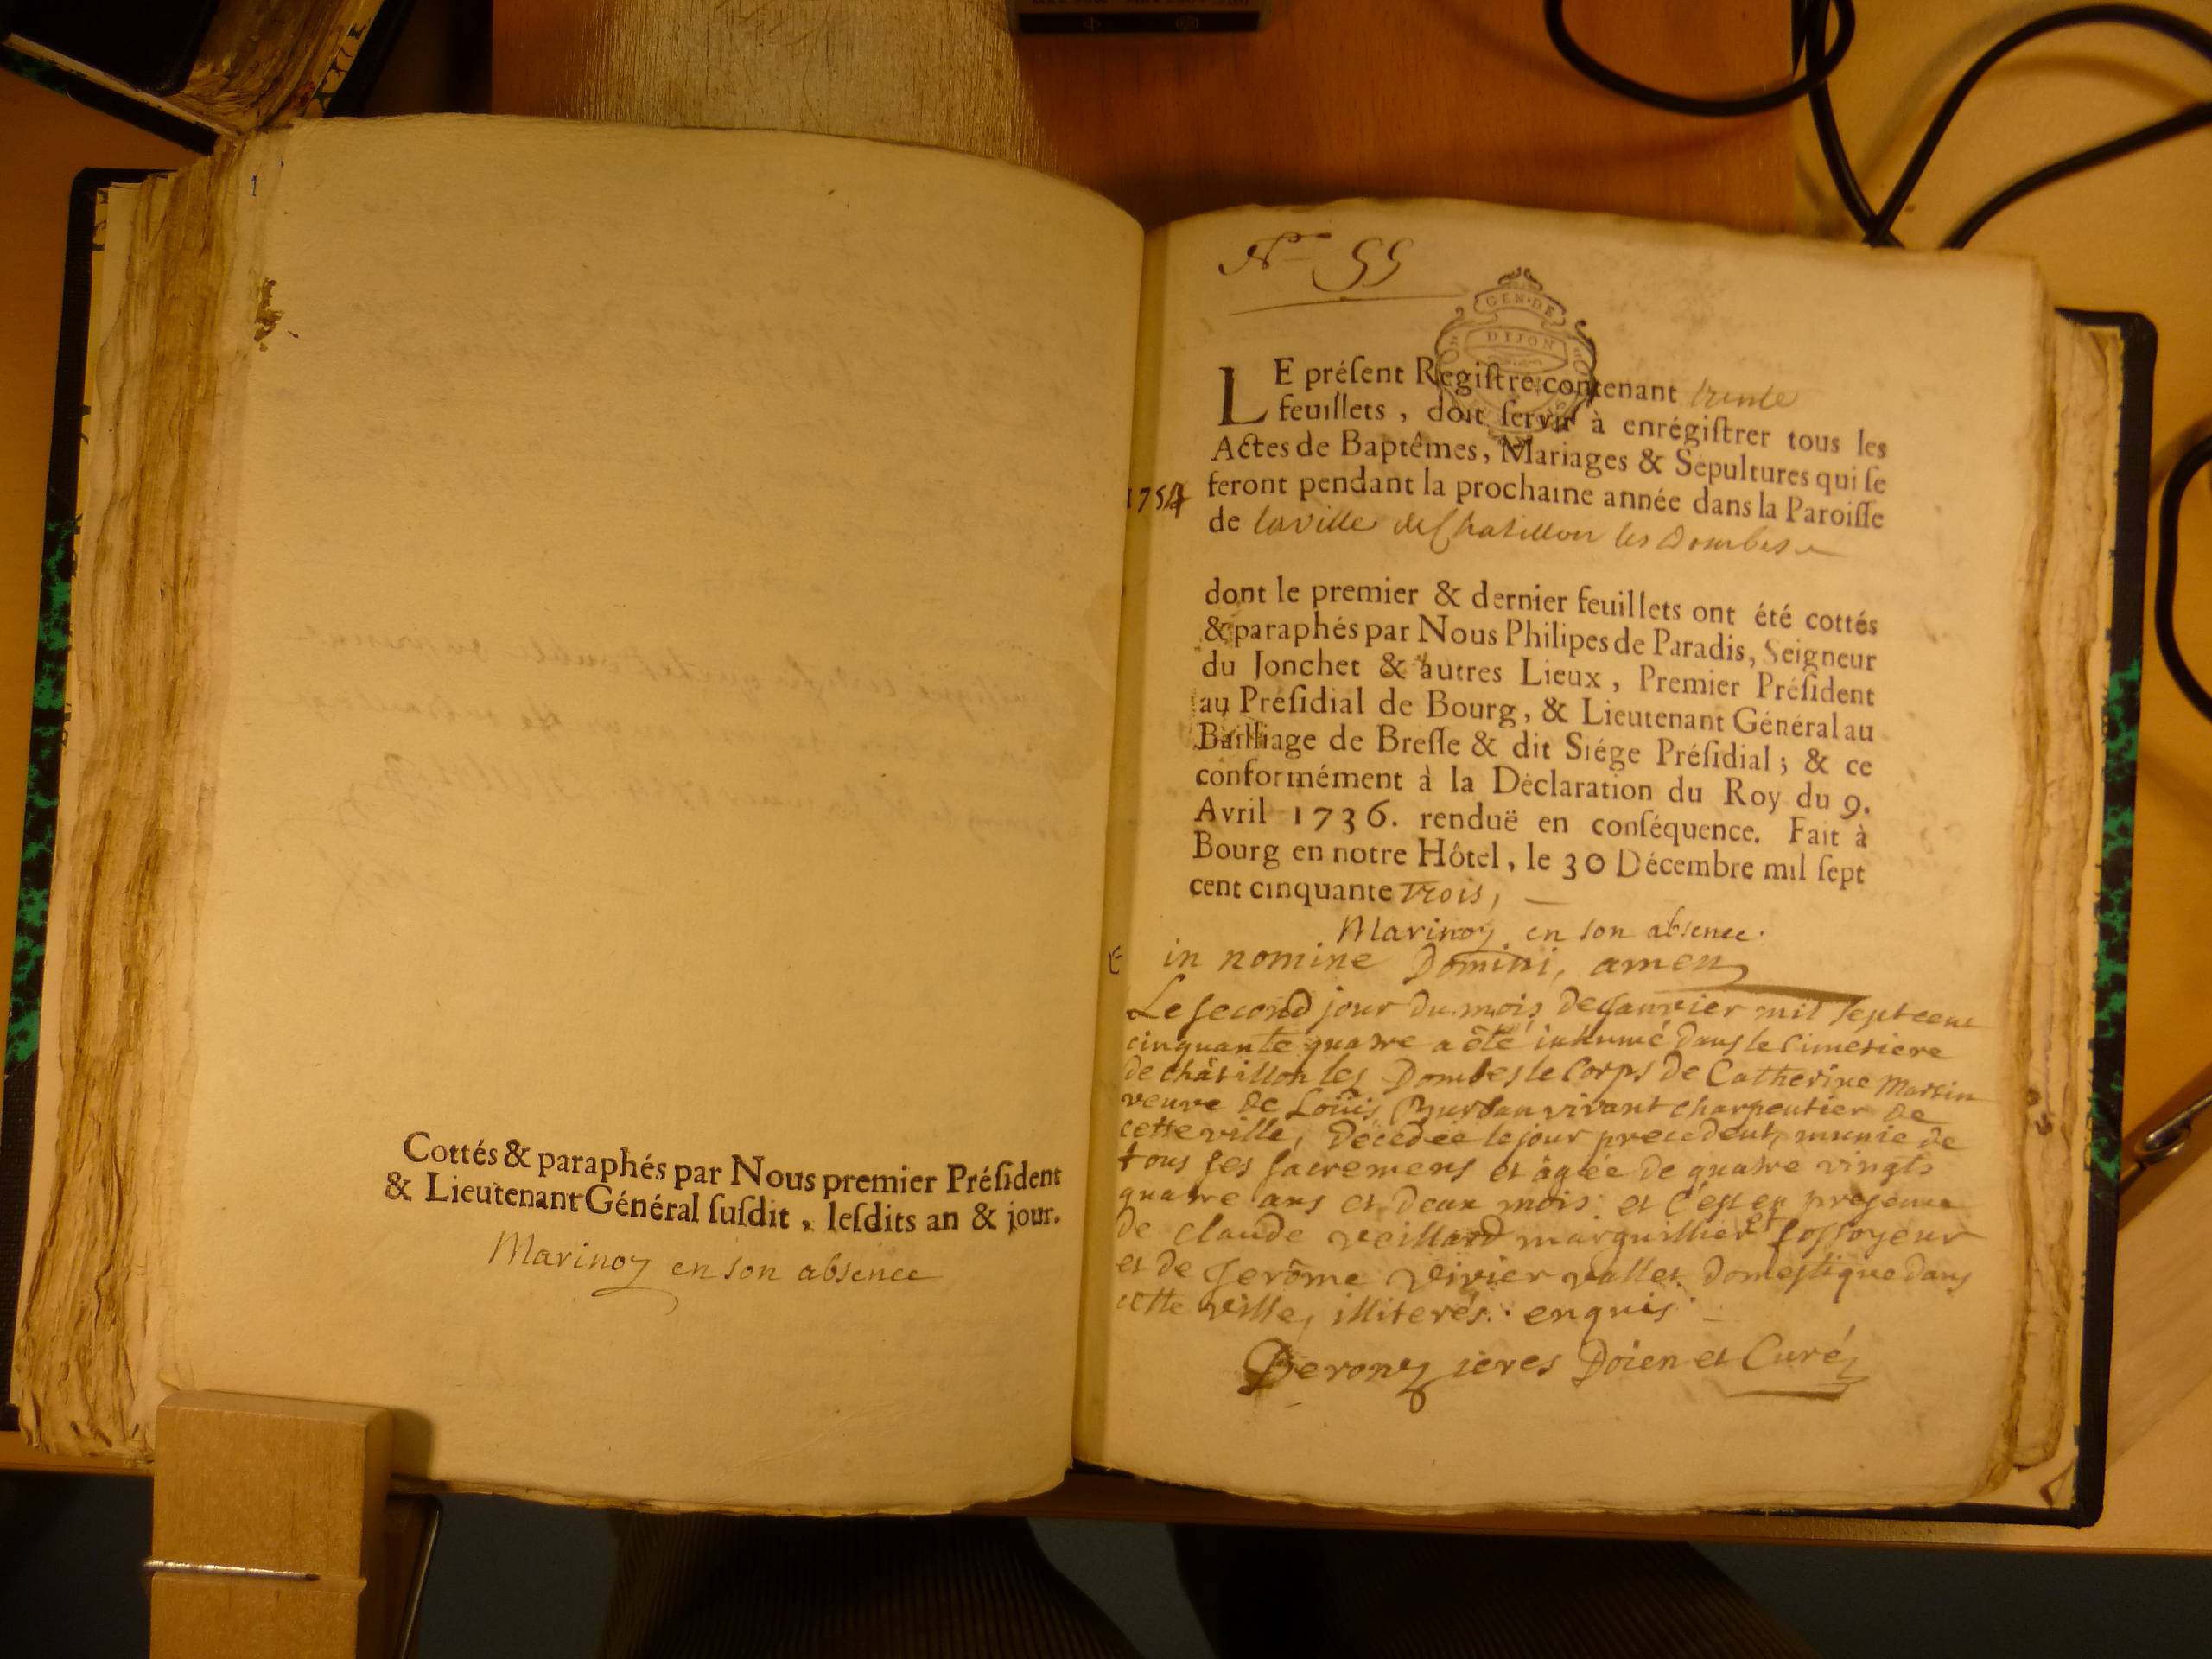 Cottés & paraphés par Nous premier Préſident
& Lieutenant Général ſuſdit, leſdits an & jour.
Marinoz en son absence
No 55
GEN·DE
DIJON
LE préſent Regiſtre contenant trente
feuillets, doit ſervir à enrégiſtrer tous les
Actes de Baptêmes, Mariages & Sépultures qui ſe
feront pendant la prochaine année dans la Paroiſſe
1754
de la ville de Chatillon les Dombes
dont le premier & dernier feuillets ont été cottés
& paraphés par Nous Philipes de Paradis, Seigneur
du Jonchet & autres Lieux, Premier Préſident
au Préſidial de Bourg, & Lieutenant Général au
Bailliage de Breſſe & dit Siége Préſidial; & ce
conformément à la Déclaration du Roy du 9.
Avril 1736. renduë en conſéquence. Fait à
Bourg en notre Hôtel, le 30 Décembre mil ſept
cent cinquante trois,
Marinoz en son absence.
in nomine Domini, amen
Le second jour du mois de Janvier mil sept cent
cinquante quatre a été inhumé dans le Cimetiere
de châtillon les Dombes le Corps de Catherine Martin
veuve de Loüis vivant charpentier de
cette ville, décédée le jour precedent, munie de
tous ses sacremens et âgée de quatre vingts
quatre ans et deux mois. et c'est en presence
de claude veillard marguillier et fossoyeur
et de Jerôme vivier vallet domestique dans
cette ville, illiterés. enquis
Deronzieres Doien et Curé